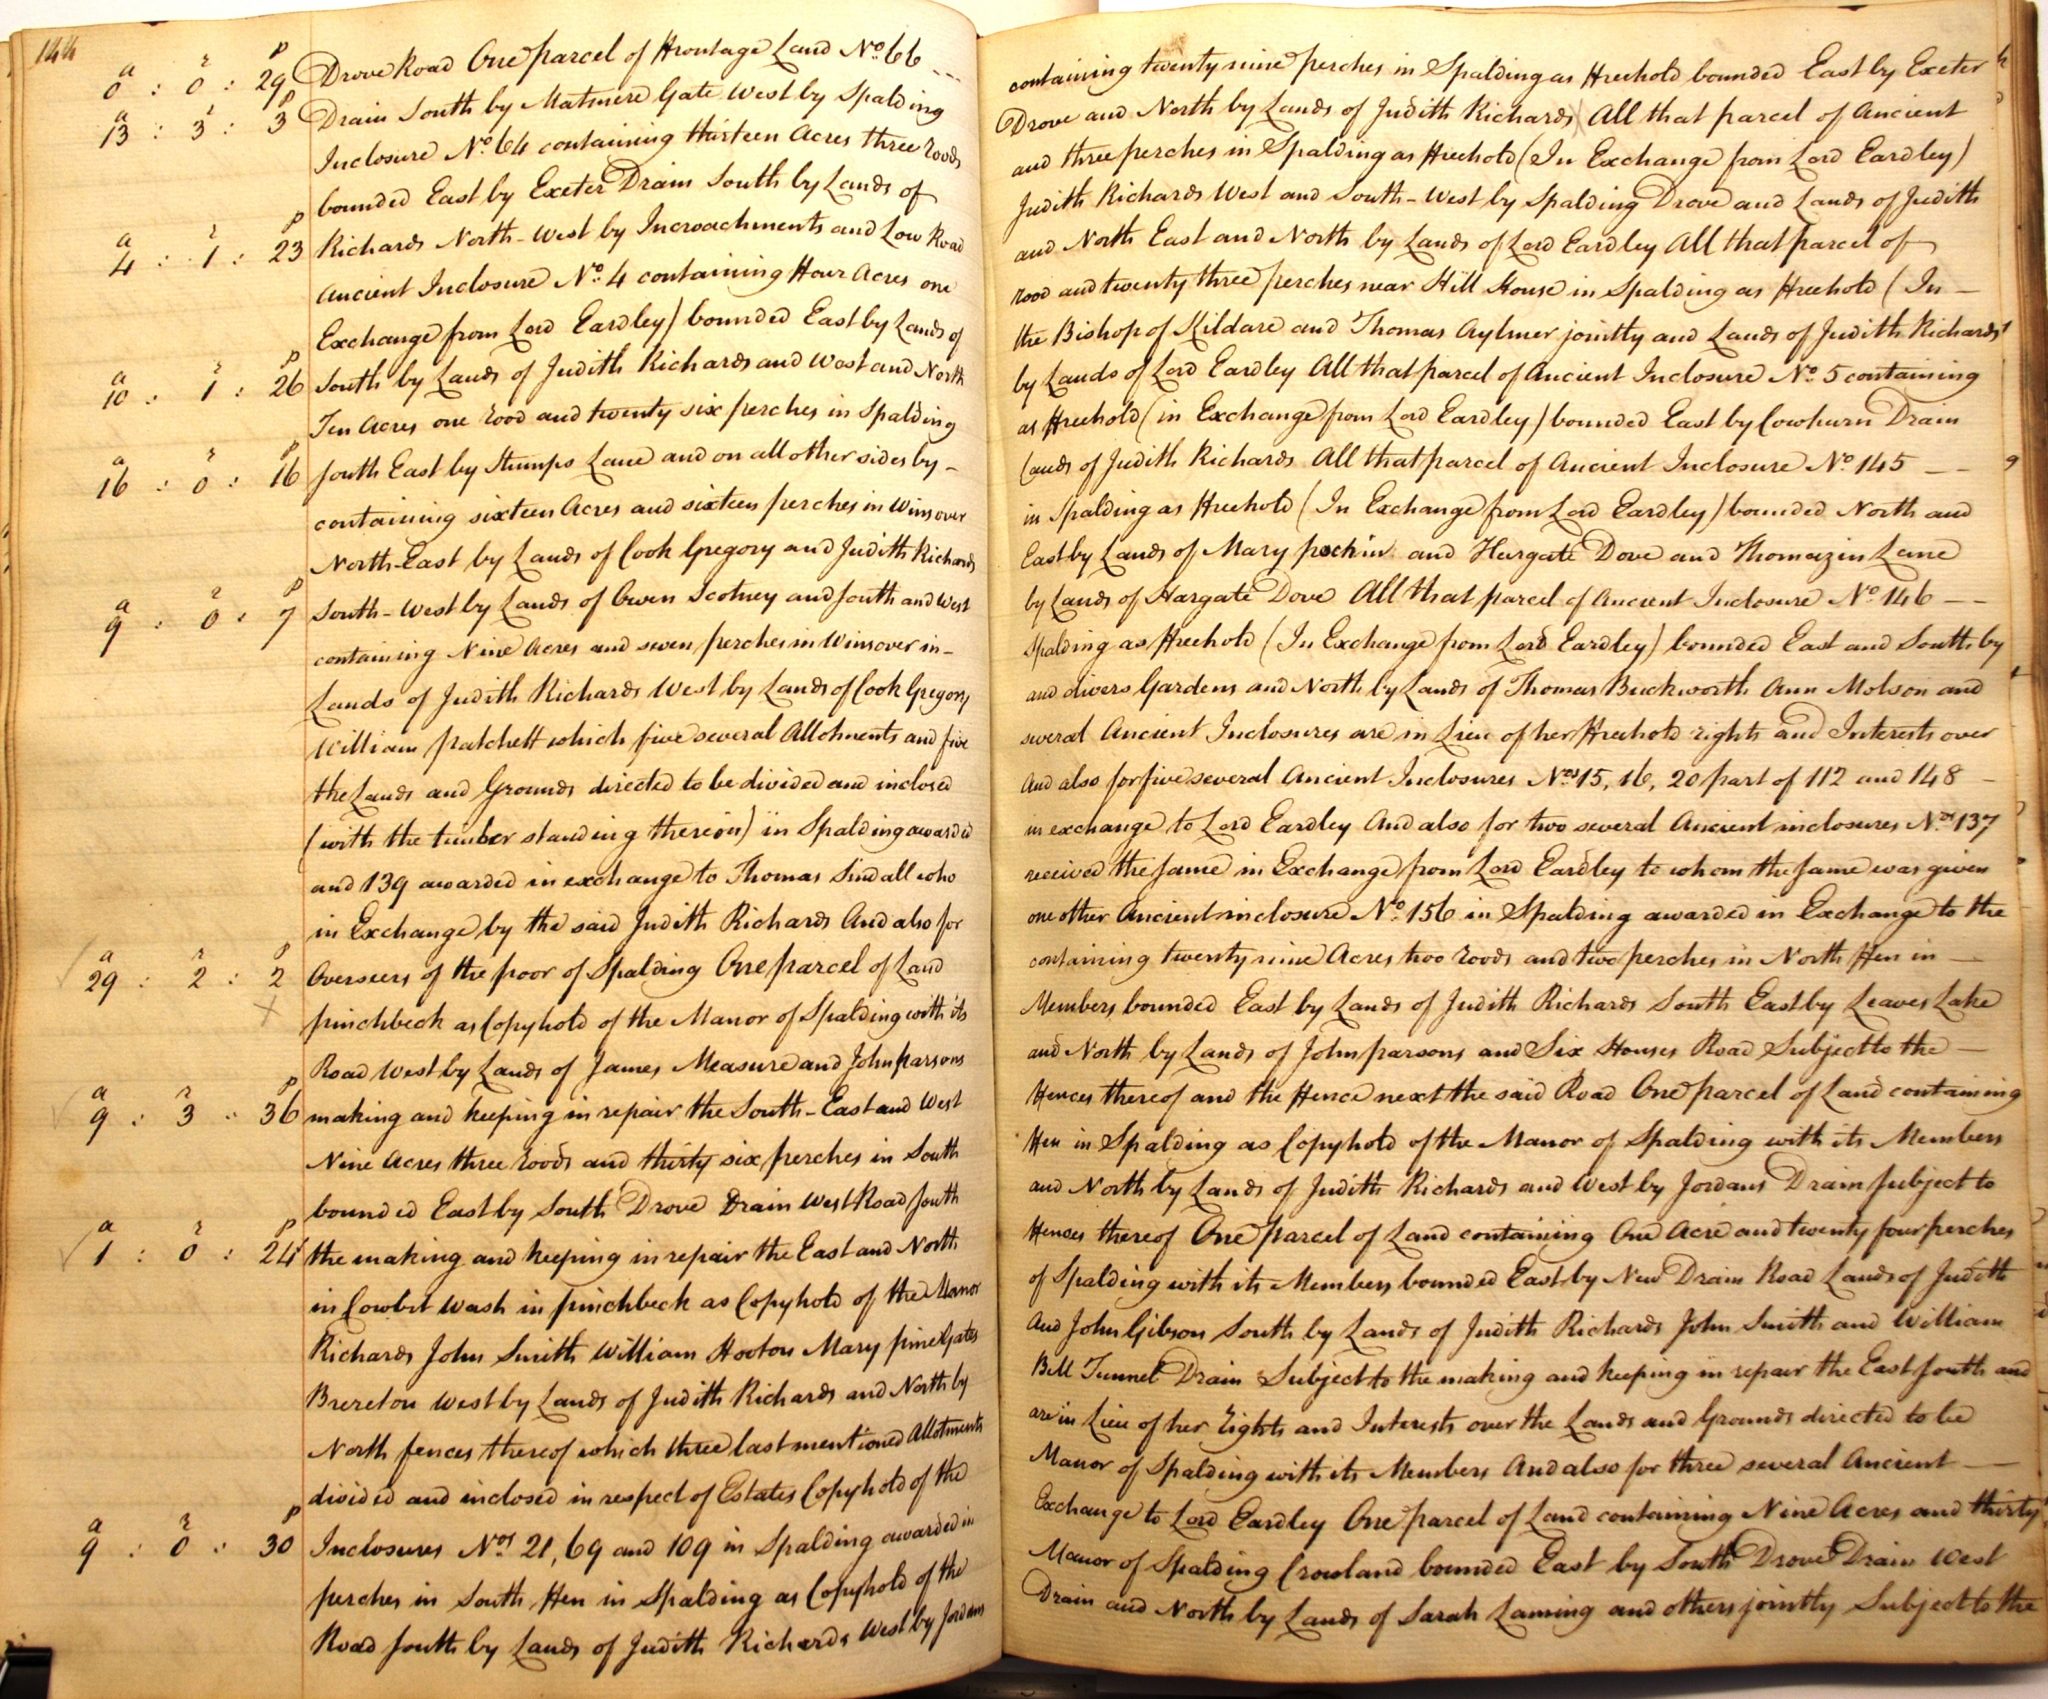 144
a r p
0 : 0 : 29 Drove Road One parcel of Frontage Land No. 66 -- containing twenty nine perches in Spalding as Freehold bounded East by Exeter
a r p
13 : 3 : 3 Drain South by Matmere Gate West by Spalding Drove and North by Lands of Judith Richards All that parcel of Ancient
Inclosure No. 64 containing thirteen Acres three roods and three perches in Spalding as Freehold (In Exchange from Lord Eardley)
bounded East by Exeter Drain South by Lands of Judith Richards West and South-West by Spalding Drove and Lands of Judith
a r p
4 : 1 : 23 Richards North-West by Incroachments and Low Road and North East and North by Lands of Lord Eardley All that parcel of
Ancient Inclosure No. 4 containing Four Acres one rood and twenty three perches near Hill House in Spalding as Freehold (In -
Exchange from Lord Eardley) bounded East by Lands of the Bishop of Kildare and Thomas Aylmer jointly and Lands of Judith Richards
a r p
10 : 1 : 26 South by Lands of Judith Richards and West and North by Lands of Lord Eardley All that parcel of Ancient Inclosure No. 5 containing
Ten Acres one rood and twenty six perches in Spalding as Freehold (in Exchange from Lord Eardley) bounded East by Cowhurn Drain
a r p
16 : 0 : 16 South East by Stumps Lane and on all other sides by - Lands of Judith Richards All that parcel of Ancient Inclosure No. 145 - -
containing sixteen Acres and sixteen perches in Winsover in Spalding as Freehold (In Exchange from Lord Eardley) bounded North and
North-East by Lands of Cook Gregory and Judith Richards East by Lands of Mary pochin and Hargate Dove and Thomazin Lane
a r p
9 : 0 : 7 South-West by Lands of Owen Scotney and South and West by Lands of Hargate Dove All that parcel of Ancient Inclosure No. 146 - -
containing Nine Acres and seven perches in Winsover in - Spalding as Freehold (In Exchange from Lord Eardley) bounded East and South by
Lands of Judith Richards West by Lands of Cook Gregory and divers Gardens and North by Lands of Thomas Buckworth Ann Molson and
William patchett which five several Allotments and five several Ancient Inclosures are in Lieu of her Freehold rights and Interests over
the Lands and Grounds directed to be divided and inclosed And also for five several Ancient Inclosures Nos. 15, 16, 20 part of 112 and 148 -
(with the timber standing thereon) in Spalding awarded in exchange to Lord Eardley And also for two several Ancient inclosures Nos. 137
and 139 awarded in exchange to Thomas Sindall who received the same in Exchange from Lord Eardley to whom the same was given
in Exchange by the said Judith Richards And also for one other Ancient inclosure No. 156 in Spalding awarded in Exchange to the
a r p
29 : 2 : 2 Overseers of the poor of Spalding One parcel of Land containing twenty nine Acres two roods and two perches in North Fen in -
pinchbeck as Copyhold of the Manor of Spalding with its Members bounded East by Lands of Judith Richards South East by Leaves Lake
Road West by Lands of James Measure and John parsons and North by Lands of John parsons and Six Houses Road Subject to the -
a r p
9 : 3 : 36 making and keeping in repair the South-East and West Fences thereof and the Fence next the said Road One parcel of Land containing
Nine Acres three roods and thirty six perches in South Fen in Spalding as Copyhold of the Manor of Spalding with its Members
bounded East by South Drove Drain West Road South and North by Lands of Judith Richards and West by Jordans Drain subject to
a r p
1 : 0 : 24 the making and keeping in repair the East and North Fences thereof One parcel of Land containing One Acre and twenty four perches
in Cowbit Wash in pinchbeck as Copyhold of the Manor of Spalding with its Members bounded East by New Drain Road Lands of Judith
Richards John Smith William Hooton Mary pine Gates And John Gibson South by Lands of Judith Richards John Smith and William
Brereton West by Lands of Judith Richards and North by Bell Tunnel Drain Subject to the making and keeping in repair the East South and
North fences thereof which three last mentioned Allotments are in Lieu of her Rights and Interests over the Lands and Grounds directed to be
divided and inclosed in respect of Estates Copyhold of the Manor of Spalding with its Members And also for three several Ancient -
a r p
9 : 0 : 30 Inclosures Nos. 21, 69 and 109 in Spalding awarded in Exchange to Lord Eardley One parcel of Land containing Nine Acres and thirty
perches in South Fen in Spalding as Copyhold of the Manor of Spalding Crowland bounded East by South Drove Drain West
Road South by Lands of Judith Richards West by Jordans Drain and North by Lands of Sarah Laming and others jointly Subject to the